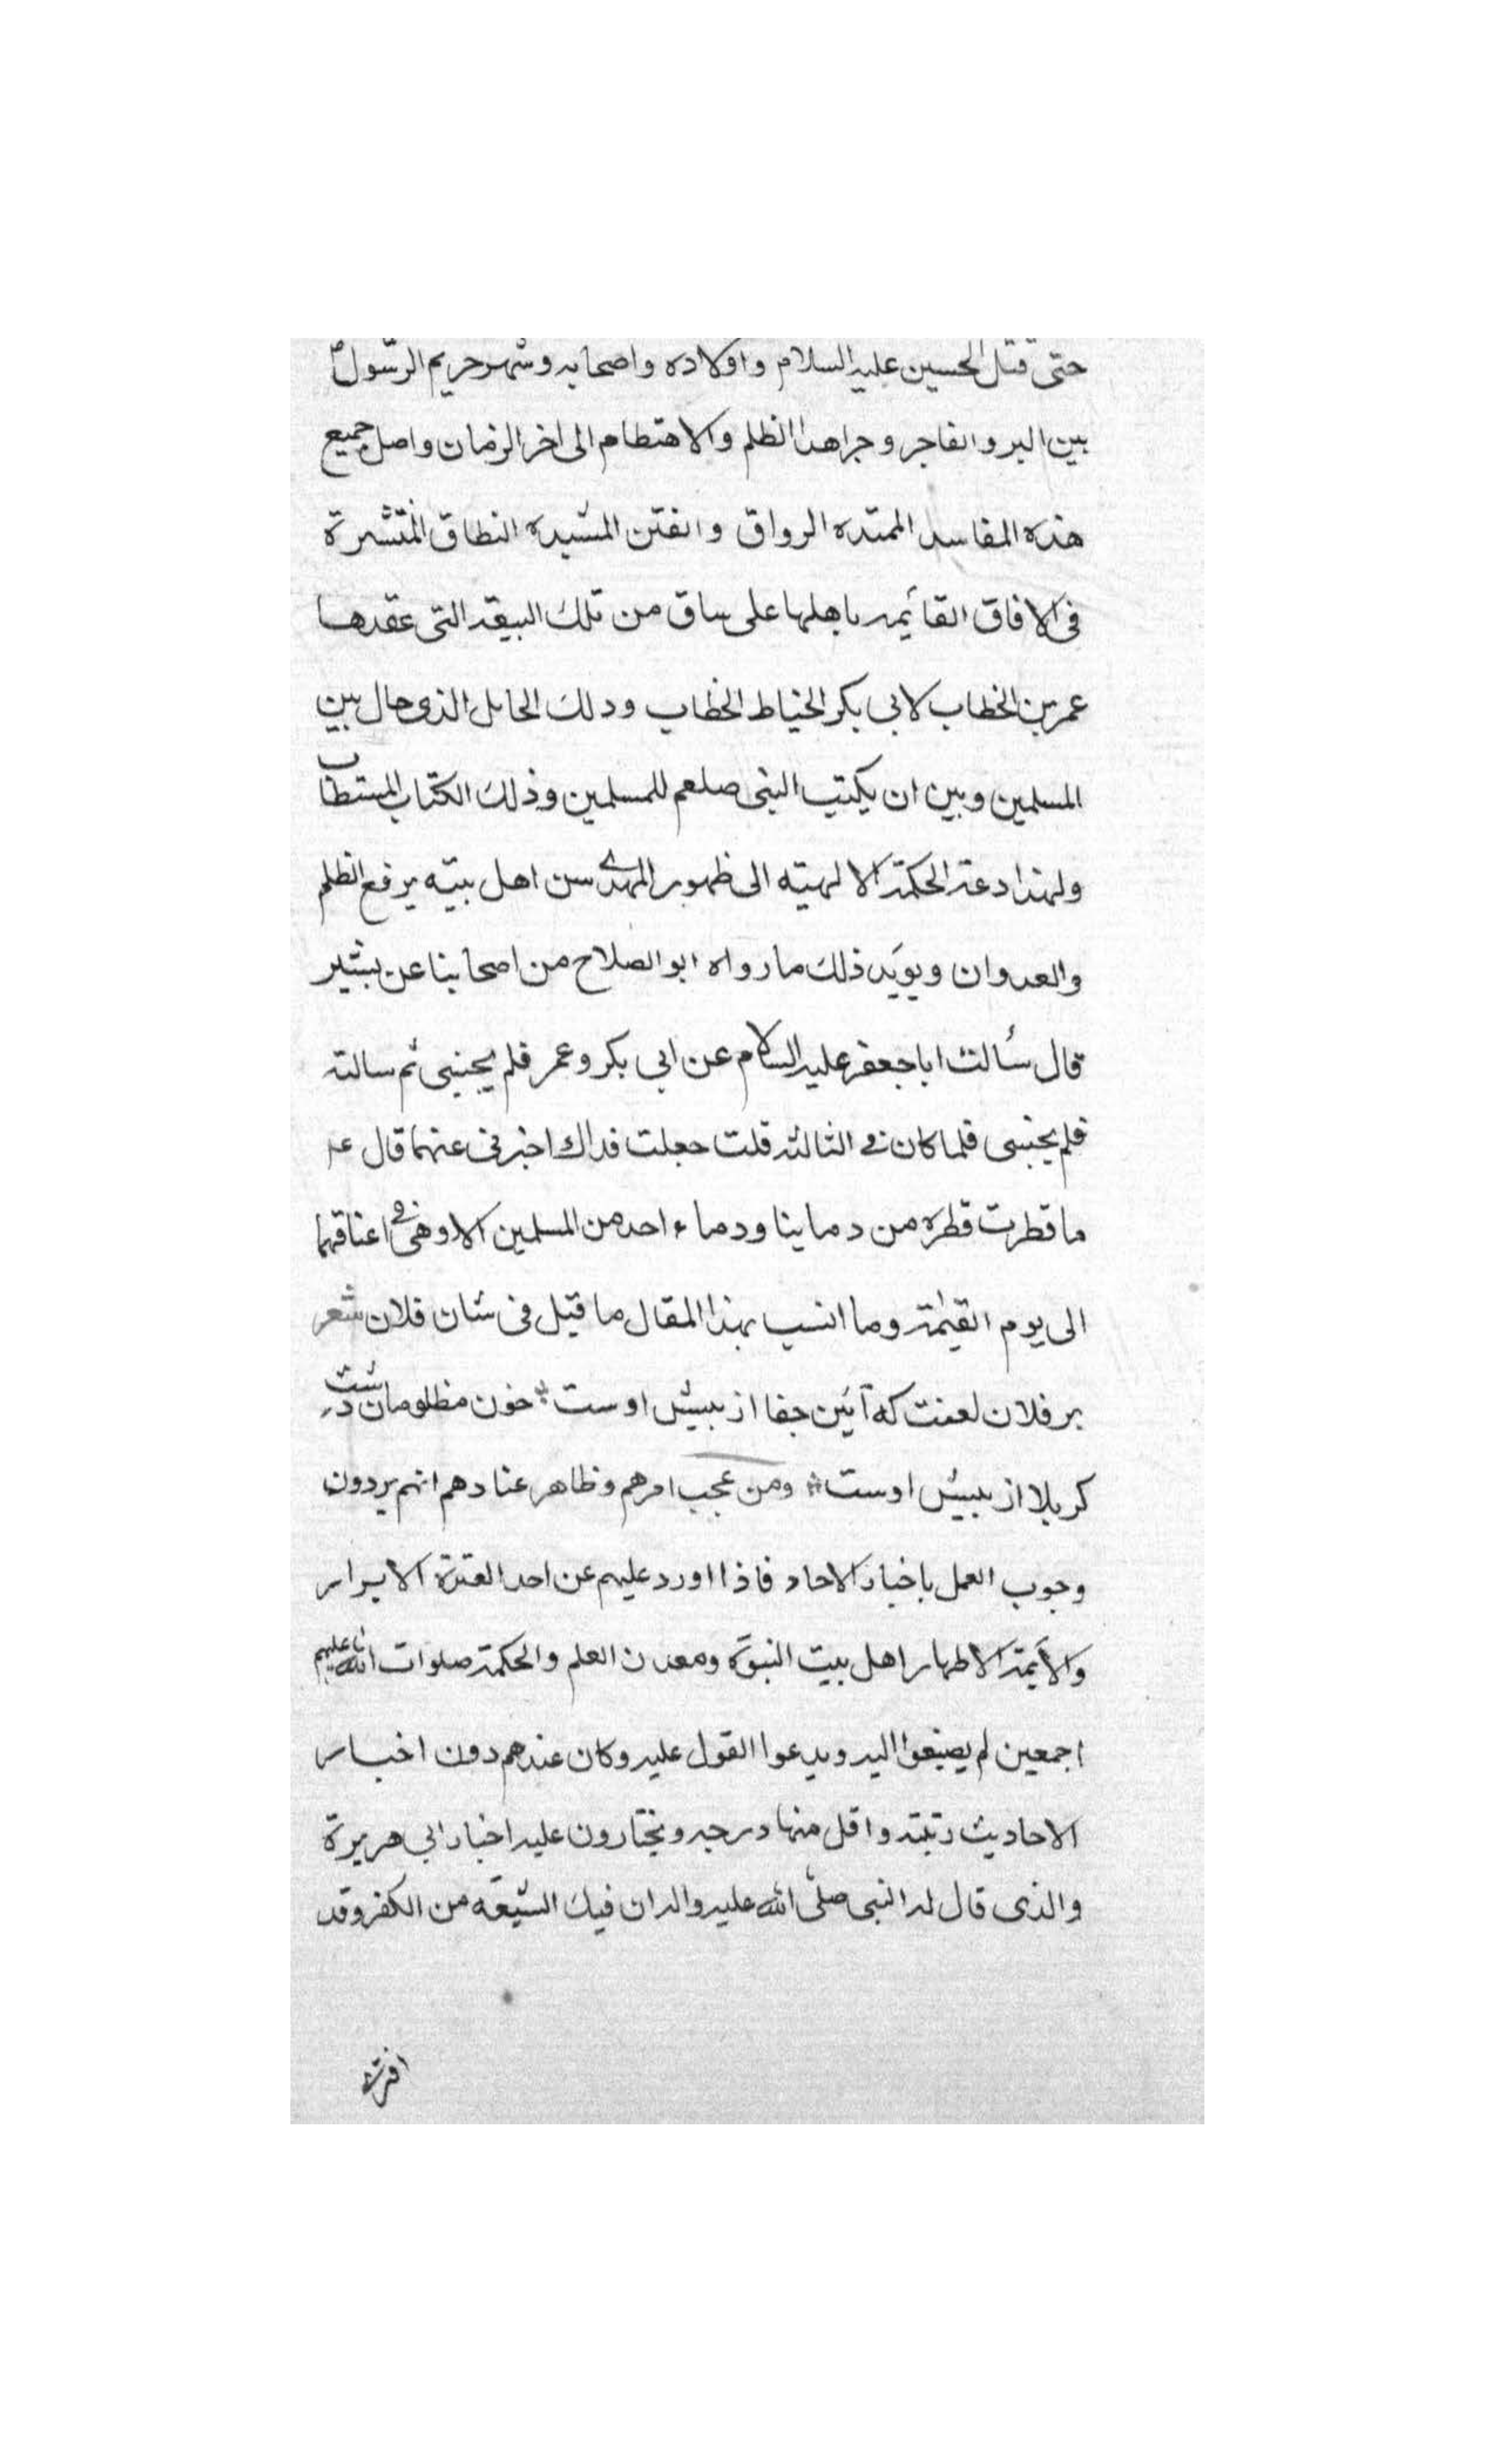 حتى قتل الحسين عليه السلام واولاده واصحابه وشهر حريم الرسول
بين البر والفاجر وجر اهذا الظلم والاهتظام الى اخر الزمان واصل جميع
هذه المفاسد الممتده الرواق والفتن المشيده النطاق المنتشرة
فى الافاق القائيمه باهلها على ساق من تلك البيعة التى عقدها
عمر بن الخطاب لابى بكر الخياط الخطاب ودلك الحايل الذى حال بين
المسلمين وبين ان يكتب النبى صلعم للمسلمين وذلك الكتاب المستطاب
ولهذا دعة الحكمة الالهيته الى ظهور المهدى من اهل بيته يرفع الظلم
والعدوان ويويد ذلك مارواه ابو الصلاح من اصحابنا عن بشير
قال سألت اباجعفر عليه السلام عن ابى بكر وعمر فلم يجبنى ثم سالته
فلم يجبنى فلما كان فى الثالثه قلت جعلت فداك اخبرنى عنهما قال ع
ما قطرت قطره من دماينا ودماء احد من المسلمين الا وهى فى اعناقهما
الى يوم القيمة وما انسب بهذا المقال ما قيل فى شان فلان شعر
بر فلان لعنت كه آئين جفا از پيش اوست خون مظلومان دشت
كربلا از پيش اوست ومن عجب امرهم وظاهر عنادهم انهم يردون
وجوب العمل باخبار الاحاد فاذا اورد عليهم عن احد العترة الابرار
والأيمة الاطهار اهل بيت النبوة ومعدن العلم والحكمة صلوات الله عليهم
اجمعين لم يصبغوا اليه ويدعوا القول عليه وكان عندهم دون اخبار
الاحاديث رتبته واقل منها درجه ويختارون عليه اخبار ابى هريرة
والذى قال له النبى صلى الله عليه واله ان فيك الشيعه من الكفر وقد